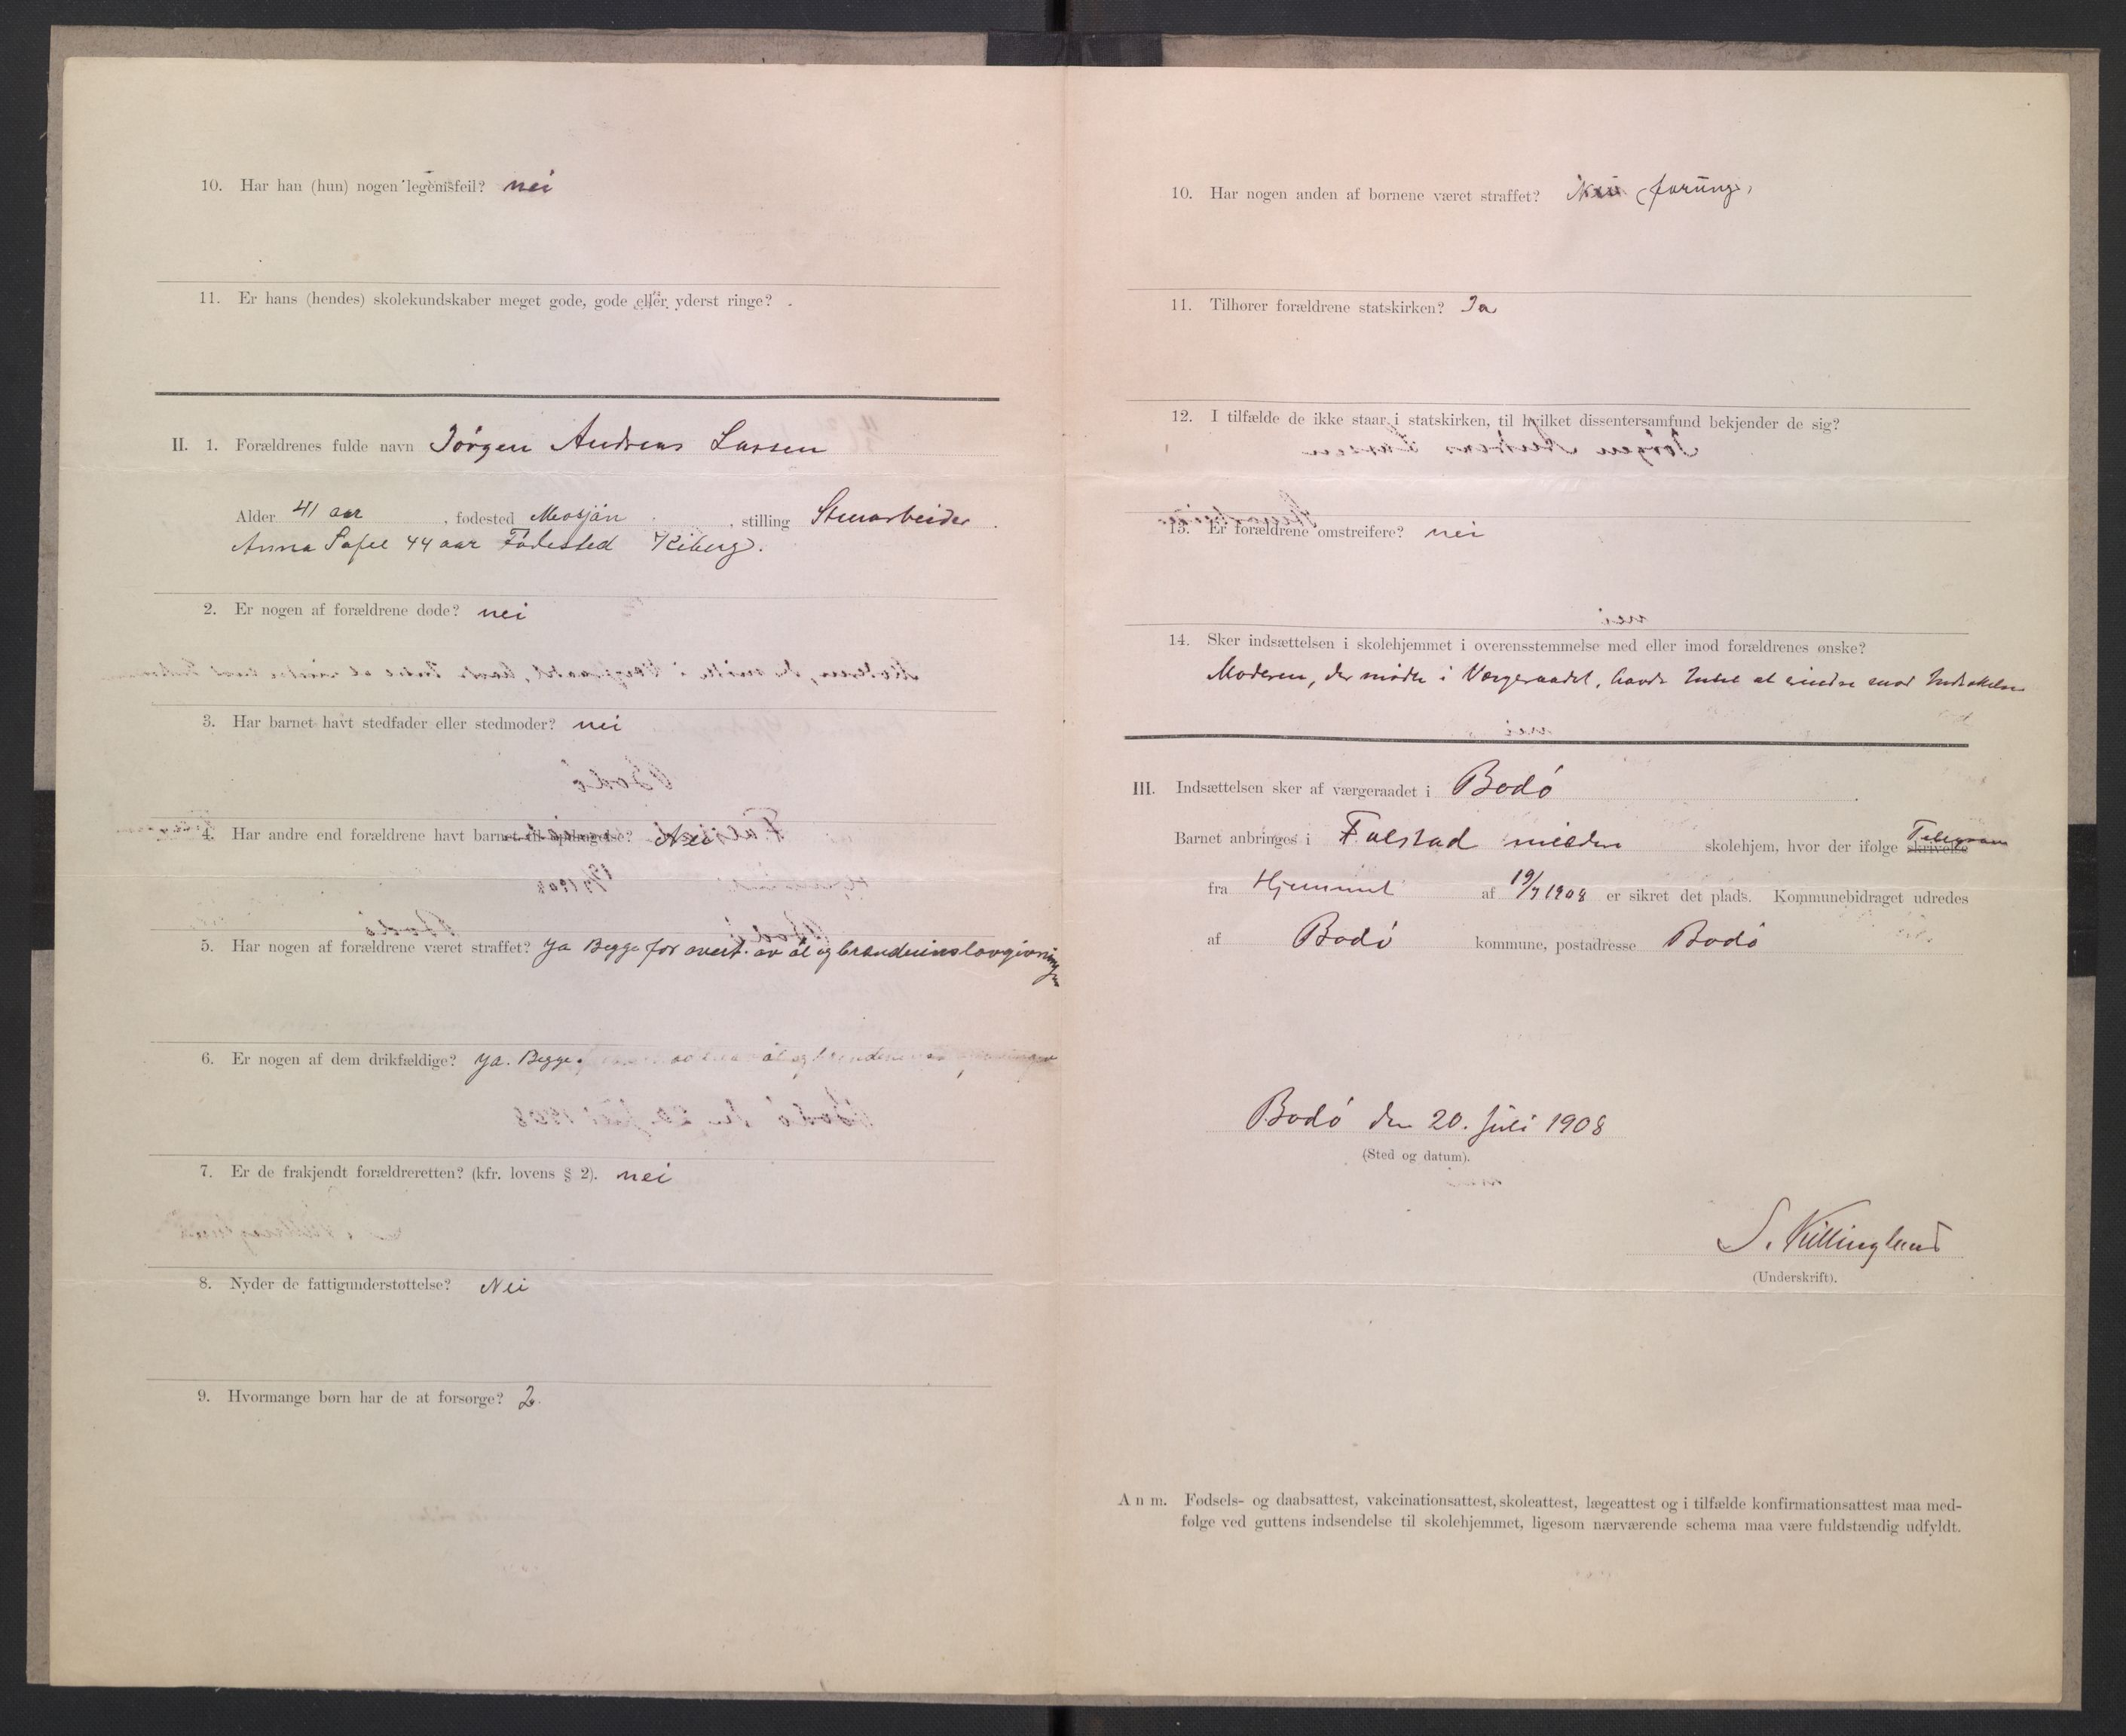 10. Har han (hun) nogen legemsfeil? nei
11. Er hans (hendes) skolekundskaber meget gode, gode eller yderst ringe?
II. 1. Forældrenes fulde navn Jörgen Andreas Larsen
Alder 41 aar, fødested Mosjön, stilling Stenarbeider.
Anna Sofie 44 aar Födested Kiberg.
2. Er nogen af forældrene døde? nei
3. Har barnet havt stedfader eller stedmoder? nei
4. Har andre end forældrene havt barnet til opdragelse? Nei
5. Har nogen af forældrene været straffet? Ja Begge for overt. av öl og brændevinslovgivningen
6. Er nogen af dem drikfældige? Ja. Begge.
7. Er de frakjendt forældreretten? (kfr. lovens § 2). nei
8. Nyder de fattigunderstøttelse? Nei
9. Hvormange børn har de at forsørge? 2.
10. Har nogen anden af børnene været straffet? Nei (forunge)
11. Tilhører forældrene statskirken? Ja
12. I tilfælde de ikke staar i statskirken, til hvilket dissentersamfund bekjender de sig?
13. Er forældrene omstreifere? nei
14. Sker indsættelsen i skolehjemmet i overensstemmelse med eller imod forældrenes ønske?
Moderen, der mödte i Værgeraadet, havde Intet at erindre mod Indsættelsen
III. Indsættelsen sker af værgeraadet i Bodö
Barnet anbringes i Falstad skolehjem, hvor der ifølge skrivelse Telegram
fra Hjemmet af 19/7 1908 er sikret det plads. Kommunebidraget udredes
af Bodö kommune, postadresse Bodö
Bodö den 20. Juli 1908
(Sted og datum).
S. Killinglund
(Underskrift).
Anm. Fødsels- og daabsattest, vakcinationsattest, skoleattest, lægeattest og i tilfælde konfirmationsattest maa med-
følge ved guttens indsendelse til skolehjemmet, ligesom nærværende schema maa være fuldstændig udfyldt.